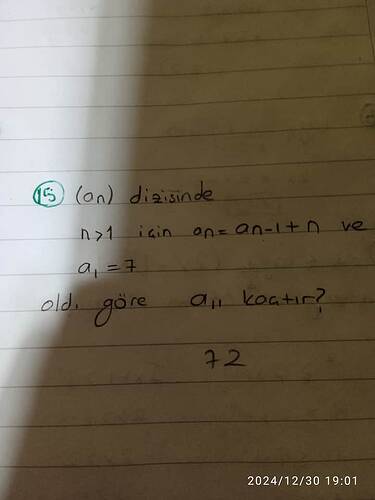 15 (an) dizisinde
n>1 için an = an-1 + n ve
a₁ = 7
old. göre a₁₁ kaçtır?
72
2024/12/30 19:01